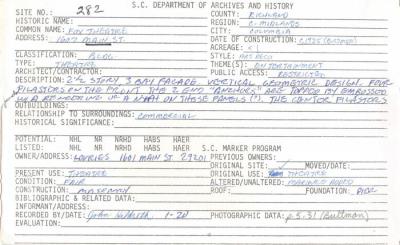 SITE NO.: 282 S.C. DEPARTMENT OF ARCHIVES AND HISTORY
HISTORIC NAME: COUNTY: RICHLAND
COMMON NAME: FOX THEATRE REGION: C. MIDLANDS
ADDRESS: 1607 MAIN ST. CITY: COLUMBIA
DATE OF CONSTRUCTION: C.1925
ACREAGE: <1
CLASSIFICATION: BLDG STYLE: ART DECO
TYPE: THEATRE THEME(S): ENTERTAINMENT
ARCHITECT/CONTRACTOR: PUBLIC ACCESS: RESTRICTED
DESCRIPTION: 2½ STORY 3 BAY FACADE VERTICAL GEOMETRIC DESIGN. FOUR
PILASTORS ON THE FRONT THE 2 END "ANCHORS" ARE TOPPED BY EMBOSSED
W/A RENDERING OF A NYMPH ON THOSE PANELS (?). THE CENTER PILASTORS
OUTBUILDINGS:
RELATIONSHIP TO SURROUNDINGS: COMMERCIAL
HISTORICAL SIGNIFICANCE:
POTENTIAL: NHL NR NRHD HABS HAER
LISTED: NHL NR NRHD HABS HAER S.C. MARKER PROGRAM
OWNER/ADDRESS: 1601 MAIN ST. 29201 PREVIOUS OWNERS:
ORIGINAL SITE: ✓ MOVED/DATE:
PRESENT USE: THEATRE ORIGINAL USE: THEATRE
CONDITION: FAIR ALTERED/UNALTERED: MARQUEE ADDED
CONSTRUCTION: MASONRY ROOF: FOUNDATION: PIER
BIBLIOGRAPHIC & RELATED DATA:
INFORMANT/ADDRESS:
RECORDED BY/DATE: John 1-20 PHOTOGRAPHIC DATA: p5-31 (Bultman)
EVALUATION: